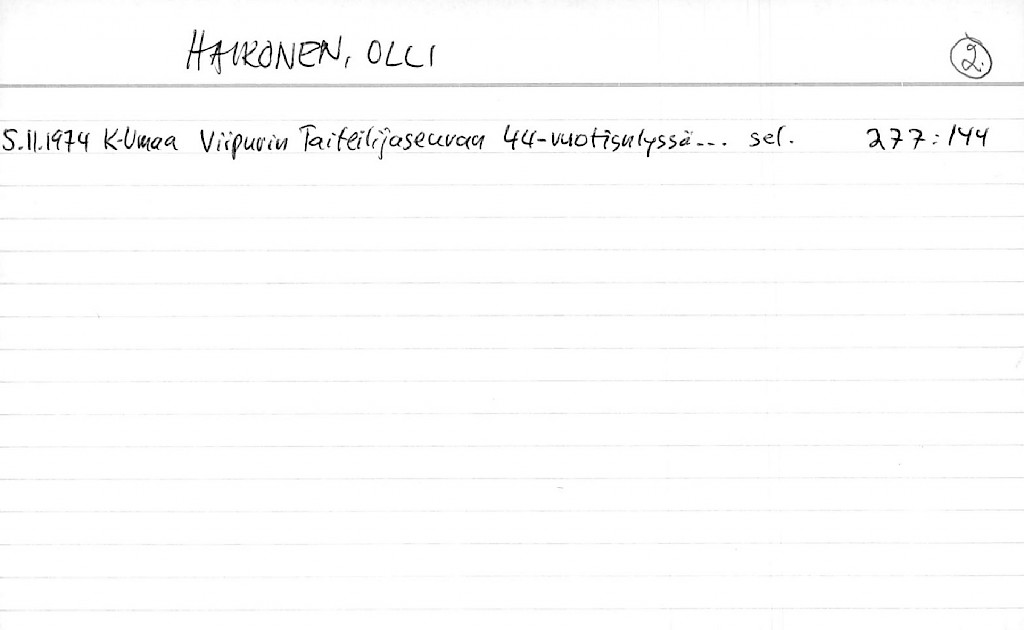 HAIKONEN, OLLI 2.
5.11.1974 K-Umaa Viipurin Taiteilijaseuran 44-vuotisnäyttelyssä... sel. 277:144